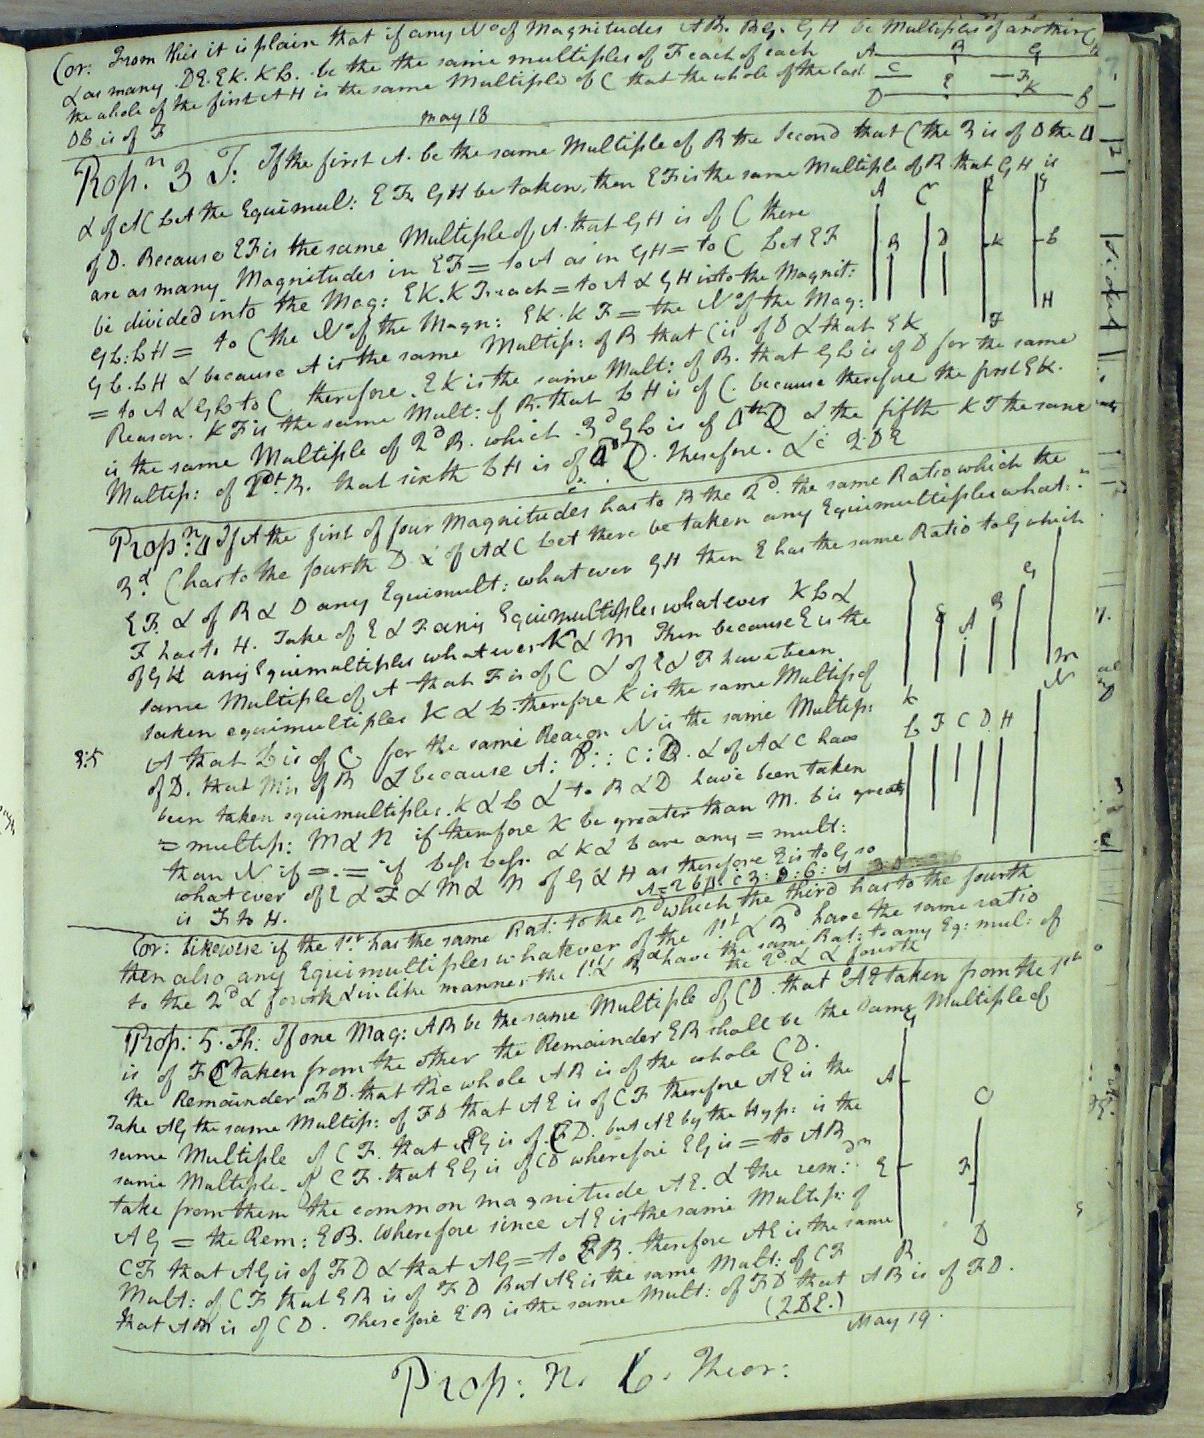 Cor: From this it is plain that if any No of Magnitudes AB. BG. GH be Multiples of another C
& as many DE. EK. KL. be the the same multiples of F each of each
the whole of the first AH is the same Multiple of C that the whole of the last
DL is of F
A B G H
C
F
D E K L
may 18
Prop.n 3 T: If the first A. be the same Multiple of B the Second that C the 3 is of D the 4
& of A C let the Equimul: EF, GH be taken, then EF is the same Multiple of B that GH is
of D. Because EF is the same Multiple of A. that GH is of C there
are as many Magnitudes in EF = to A as in GH = to C Let EF
be divided into the Mag: EK. KF. each = to A & GH into the Magnit:
GL. LH = to C the No of the Magn: EK. KF = the No of the Mag:
GL. LH & because A is the same Multip: of B that C is of D & that EK
= to A & GL to C therefore. EK is the same Mult: of B. that GL is of D for the same
Reason. KF is the same Mult: of B. that LH is of C. because therefore the first EK.
is the same Multiple of 2d B. which 3d GL is of 4th D & the fifth KF the same
Multip: of 2d. B. that sixth LH is of 4th D. Therefore. &c 2DE
A C E G
B D K L
F H
Prop:n 4 If A the first of four Magnitudes has to B the 2d. the same Ratio which the
3d C has to the fourth D & of A & C let there be taken any Equimultiples what:
EF. & of B & D any Equimult: what ever GH then E has the same Ratio to G which
F has to H. Take of E & F any Equimultiples what ever K L &
of GH any Equimultiples what ever M & N Then because E is the
same Multiple of A that F is of C & of E & F have been
taken equimultiples K & L. therefore K is the same Multip: of
A that L is of C for the same Reason N is the same Multip:
of D. that M is of B & because A: B:: C: D. & of A & C have
been taken equimultiples. K & L & to B & D have been taken
= multip: M & N if therefore K be greater than M. L is great
than N if = . = if less less. & K & L are any = mult:
what ever of E & F & M & N of G & H as therefore E is to G so
is F to H.
3:5
K E A B G M
L F C D H N
Cor: Likewise if the 1st has the same Rat: to the 2d which the third has to the fourth
then also any Equimultiples whatever of the 1st & 3d have the same ratio
to the 2d & fourth & in like manner the 1st & 3d have the same Rat: to any Eq: mul: of
the 2d. & & fourth
Prop: 5. Th: If one Mag: AB be the same Multiple of CD. that AE taken from the 1st
is of FC taken from the other the Remainder EB shall be the same Multiple of
the Remainder FD. that the whole AB is of the whole CD.
Take AG the same Multip: of FD that AE is of CF therefore AE is the
same Multiple of CF. that EG is of CD. but AE by the Hyp: is the
same Multiple. of CF. that EG is of CD wherefore EG is = to AB
take from them the common magnitude AE. & the rem:dn
AG = the Rem: EB. Wherefore since AE is the same Multip: of
CF that AG is of FD & that AG = to EB. therefore AE is the same
Mult: of CF that EB is of FD But AE is the same Mult: of CF
that AB is of CD. Therefore EB is the same Mult: of FD that AB is of FD.
(2DE.)
G
A C
E F
B D
May 19.
Prop: n. 6. Theor: